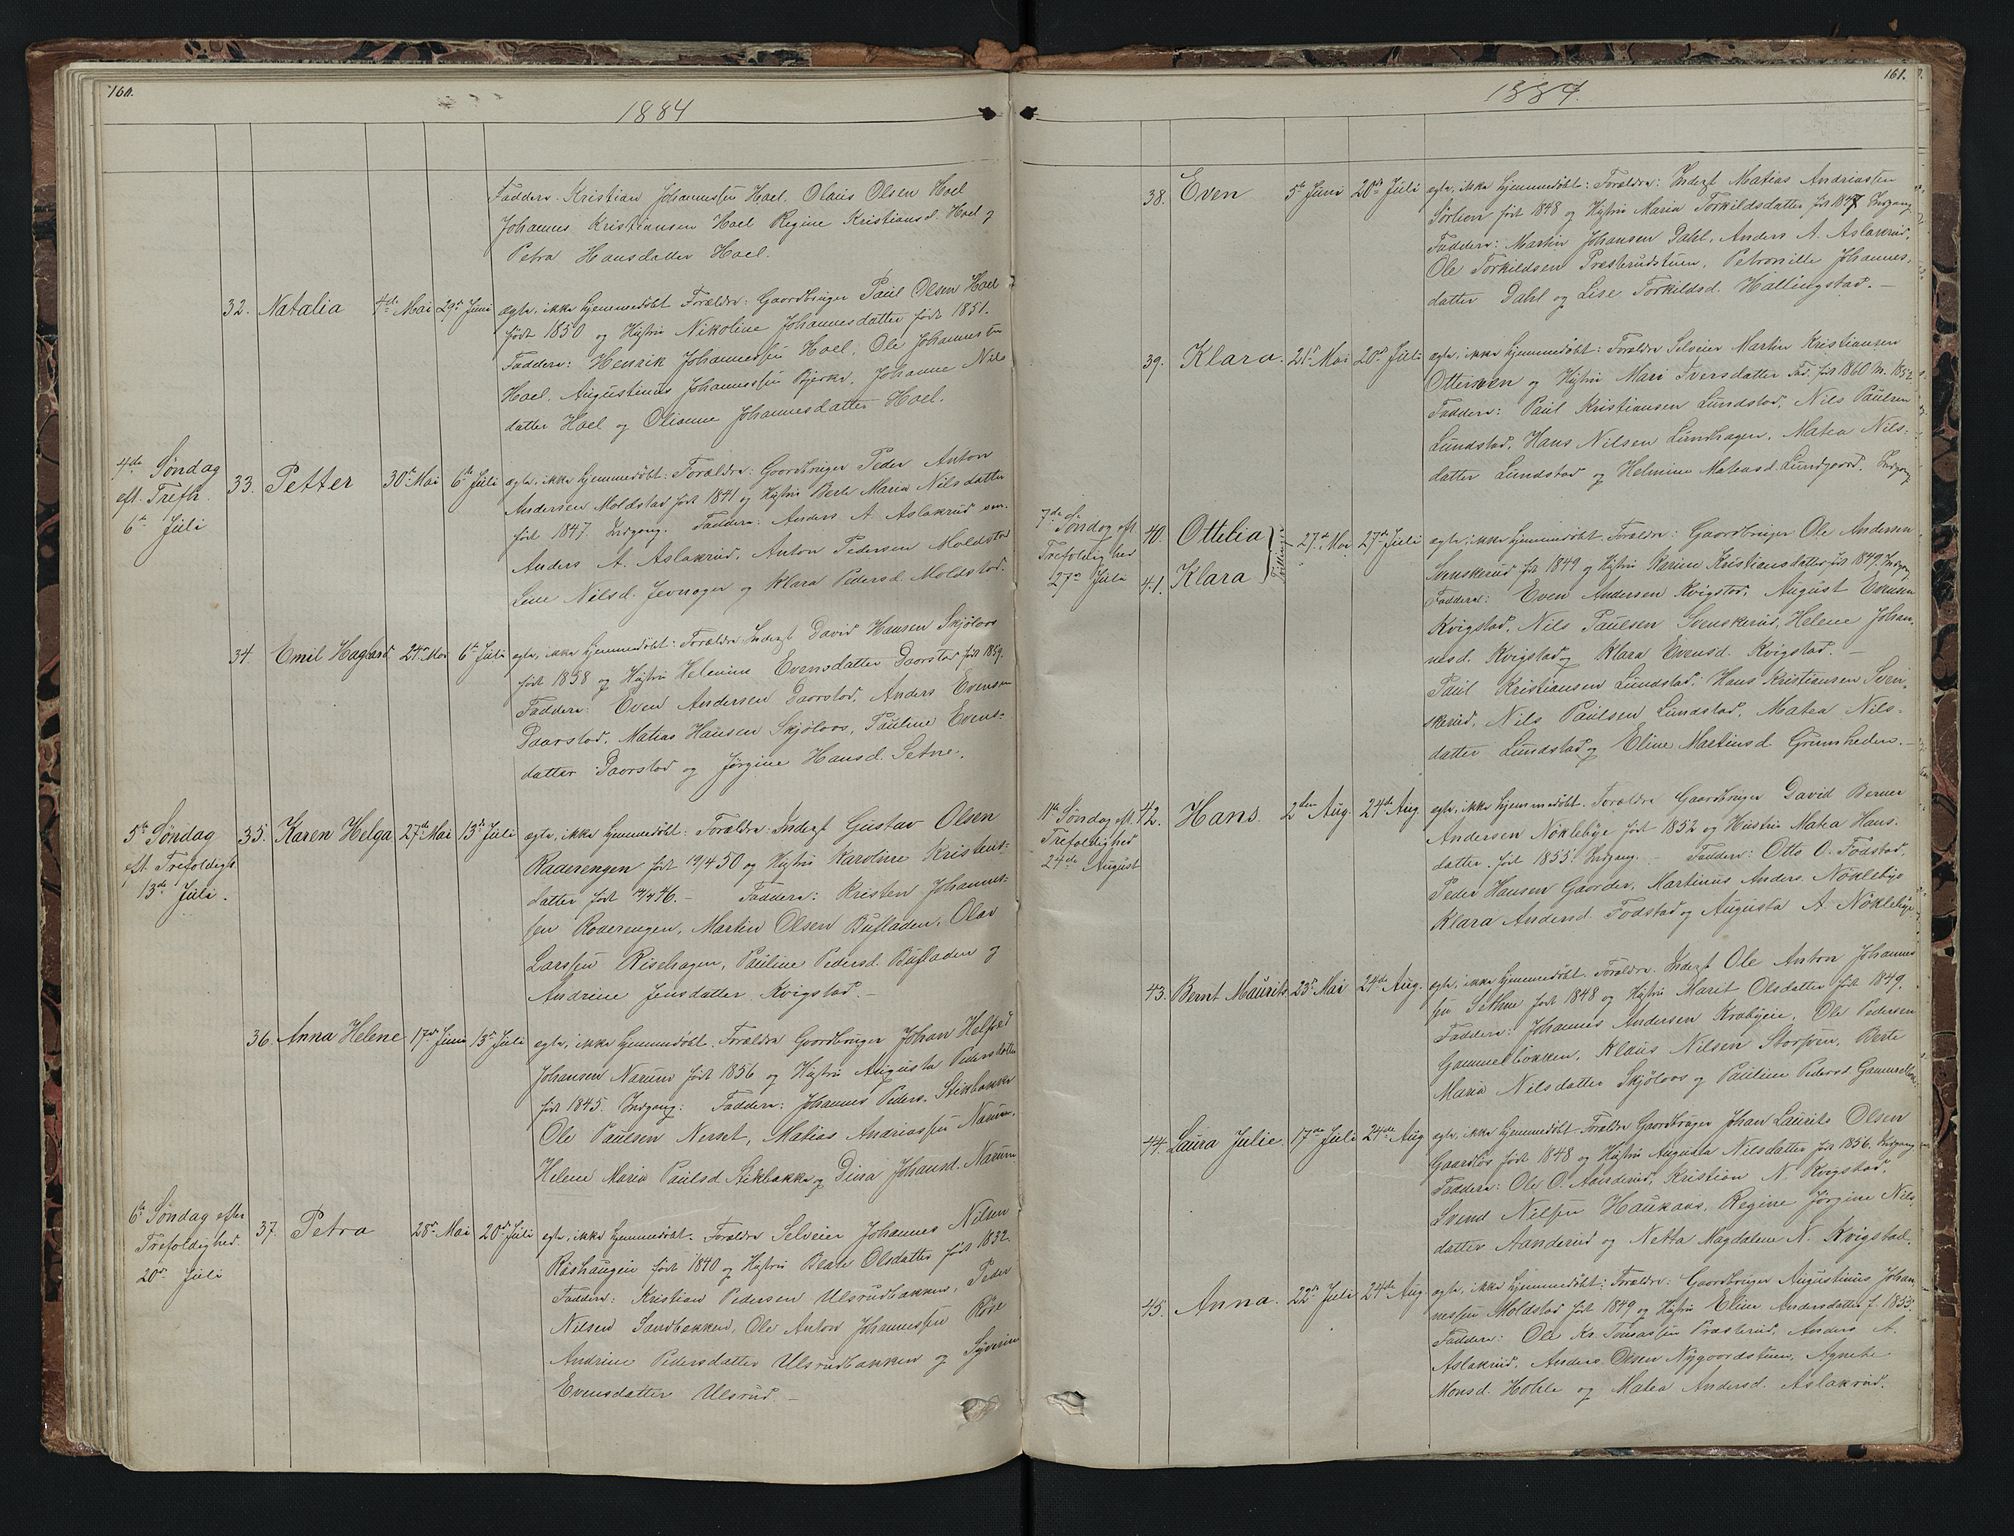 160.
1884
Faddere: Kristian Johannessen Hoel, Olaus Olsen Hoel
Johannes Kristiansen Hoel Regine Kristiansd. Hoel og
Petra Hansdatter Hoel.
32. Natalia 4de Mai 29de Juni ægte, ikke hjemmedøbt Forældre: Gaardbruger Paul Olsen Hoel
født 1850 og Hustru Nikoline Johannesdatter født 1851.
Faddere: Henrik Johannessen Hoel, Ole Johannessen
Hoel, Augustinus Johannessen Bjerke, Johanne Nils
datter Hoel og Olianne Johannesdatter Hoel.
4de Søndag
eft. Trefh.
6te Juli
33. Petter 30te Mai 6te Juli ægte, ikke hjemmedøbt: Forældre: Gaardbruger Peder Anton
Andersen Moldstad født 1841 og Hustru Berte Maria Nilsdatter
født 1847. Indgang. Faddere: Anders A. Aslakrud sen.
Anders A. Aslakrud, Anton Pedersen Moldstad
Lene Nilsd. Jevnager og Klara Pedersd. Moldstad.
34. Emil Hagbard 24de Mai 6te Juli ægte, ikke hjemmedøbt: Forældre Inderst David Hansen Skjølaas
født 1858 og Hustru Helenine Evensdatter Paarstad født 1859.
Faddere: Even Andersen Paarstad, Anders Evensen
Paarstad, Matias Hansen Skjølaas, Pauline Evens-
datter Paarstad og Jørgine Hansd. Setne.
5te Søndag
eft. Trefoldigh.
13de Juli.
35. Karen Helga 27de Mai 13de Juli ægte, ikke hjemmedøbt: Forældre: Inderst Gustav Olsen
Raderengen født 19/4 50 og Hustru Karoline Kristens-
datter født 46. – Faddere: Kristen Johannes-
sen Roderengen, Martin Olsen Bufladen, Olav
Larssen Risehagen, Pauline Pedersd. Bufladen og
Andrine Jensdatter Kvigstad. –
36. Anna Helene 17de Juni 13de Juli ægte, ikke hjemmedøbt. Forældre Gaardbruger Johan Helfred
Johansen Narum født 1856 og Hustru Augusta Pedersdatter
født 1845. Indgang: Faddere: Johannes Peders. Stikbakke
Ole Paulsen Nerset, Matias Andriassen Narum.
Helene Maria Paulsd. Stikbakke og Dina Johansd. Narum
6te Søndag efter
Trefoldighed.
20de Juli
37. Petra 28de Mai 20de Juli ægte, ikke hjemmedøbt. Forældre Selveier Johannes Nilsen
Røshaugen født 1840 og Hustru Beate Olsdatter født 1832.
Faddere: Kristian Pedersen Ulsrudbakken, Peder
Nilsen Sandbakken, Ole Anton Johannessen Røse
Andrine Pedersdatter Ulsrudbakken og Syverine
Evensdatter Ulsrud. –
161.
1884.
38. Even 5te Juni 20de Juli ægte, ikke hjemmedøbt: Forældre: Inderst Matias Andriassen
Sørlien født 1848 og Hustru Maria Torkildsdatter født 1847 Indgang
Faddere: Martin Johansen Dahl, Anders A. Aslakrud,
Ole Torkildsen Præsterudstuen, Petronille Johannes-
datter Dahl og Lise Torkildsd. Hallingstad. –
39. Klara. 21de Mai 20de Juli ægte, ikke hjemmedøbt: Forældre Selveier Martin Kristiansen
Ottersven og Hustru Mari Iversdatter Fad. født 1860 M. 1852
Faddere: Paul Kristiansen Lundstad, Nils Paulsen
Lundstad, Hans Nilsen Lundhagen, Matea Nils-
datter Lundstad og Helmine Mateasd. Lundgaard. Indgang
7de Søndag eft.
Trefoldighed
27de Juli
40. Ottilia
41. Klara
Tvillinger
27de Mai 27de Juli ægte, ikke hjemmedøbt. Forældre: Gaardbruger Ole Andersen
Svenskerud født 1849 og Hustru Karine Kristiansdatter født 1849. Indgang
Faddere: Even Andersen Kvigstad, August Evensen
Kvigstad, Nils Paulsen Svenskerud, Helene Johan-
nesd. Kvigstad og Klara Evensd. Kvigstad. –
Paul Kristiansen Lundstad, Hans Kristiansen Sven-
skerud, Nils Paulsen Lundstad, Matea Nils-
datter Lundstad og Eline Martinsd Grimsheden. –
11te Søndag eft.
Trefoldighed
24de August
42. Hans. 2den Aug. 24de Aug. ægte, ikke hjemmedøbt. Forældre Gaardbruger David Berner
Andersen Nøklebye født 1852 og Hustru Matea Hans-
datter født 1855. Indgang. – Faddere: Otto O. Fodstad,
Peder Hansen Gaarder, Martinus Anders. Nøklebye
Klara Andersd. Fodstad og Augusta A. Nøklebye
43. Bernt Maurits 23de Mai 24de Aug. ægte, ikke hjemmedøbt. Forældre: Inderst Ole Anton Johannes
sen Sethne født 1848 og Hustru Marit Olsdatter født 1849.
Faddere: Johannes Andersen Krabyeie, Ole Pedersen
Gammelbakken, Klaus Nilsen Storsven, Berte
Maria Nilsdatter Skjølaas og Pauline Pedersd Gammelbak.
44. Laura Julie 17de Juli 24de Aug ægte, ikke hjemmedøbt. Forældre Gaardbruger Johan Laurits Olsen
Gaardløs født 1848 og Hustru Augusta Nilsdatter født 1856. Indgang
Faddere: Ole O. Aanderud, Kristian N. Kvigstad,
Svend Nilsen Haukaas, Regine Jørgine Nils
datter Aanderud og Netta Magdalene N. Kvigstad.
45. Anna. 22de Juli 24de Aug. ægte, ikke hjemmedøbt: Forældre: Gaardbruger Augustinus Johan-
nessen Moldstad født 1849 og Hustru Eline Andersdatter f. 1855.
Faddere: Ole Kr. Tomassen Præsterud, Anders A.
Aslakrud, Anders Olsen Nygaardstuen, Agnete
Monsd. Hohle og Matea Andersd. Aslakrud.